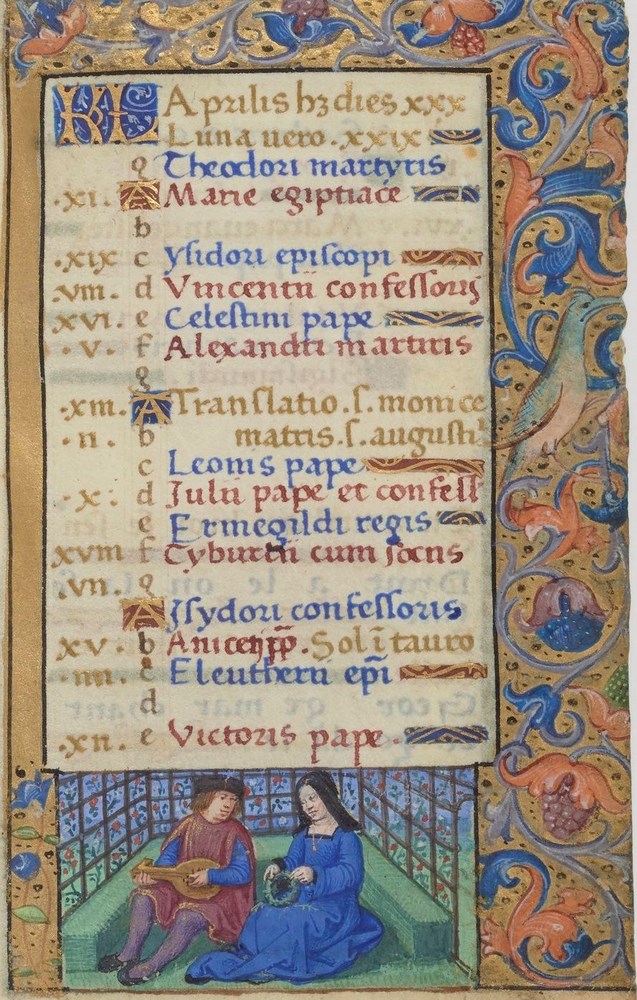 KL Aprilis hꝫ dies xxx
Luna uero .xxix
g Theodori martyris
.xi. A Marie egiptiace
b
.xix c ysidori episcopi
.viii. d Vincentii confessoris
xvi. e Celestini pape
.v. f Alexandri martiris
g
.xiii. A Translatio .s. monice
.ii. b matris .s. augusti
c Leonis pape
.x. d Julii pape et confess
e Ermegildi regis
xviii f Tyburtii cum sociis
.vii. g
A Jsydori confessoris
xv. b Sol ī tauro
iiii. c Eleutherii epī
d
.xii. e Victoris pape